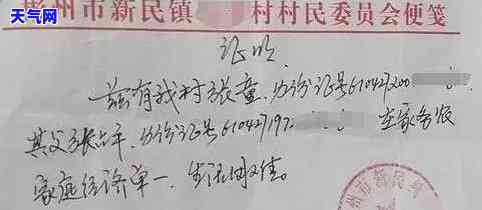 天气网
彬州市新民镇 村村民委员会便笺
证明
兹有我村张童,身份证号610427200
其父张占年,身份证号610427197 在家务农
家庭经济单一,生活困难。
州市新民